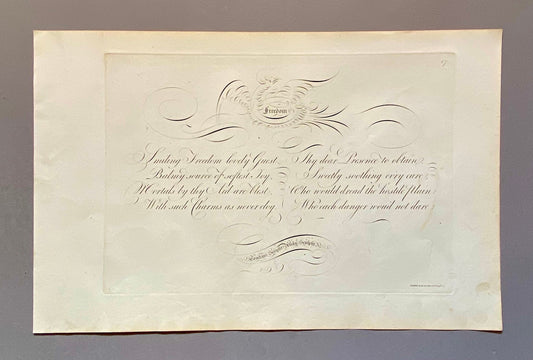 Freedom
Smiling Freedom lovely Guest
Balmy source of softest Joy,
Mortals by thy Aid are blest
With such Charms as never cloy.
Thy dear Presence to obtain
Sweetly soothing every care
Who would dread the hostile plain
Who each danger would not dare